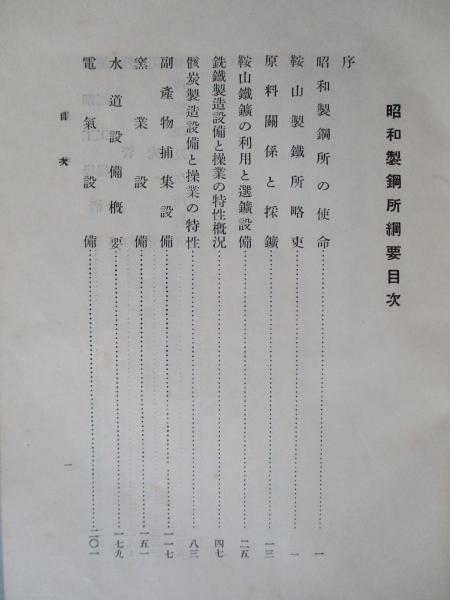 昭和製鋼所綱要目次
序
昭和製鋼所の使命……一
鞍山製鐵所略史……一
原料關係と採鑛……一三
鞍山鐵鑛の利用と選鑛設備……二五
銑鐵製造設備と操業の特性概況……四七
骸炭製造設備と操業の特性……八三
副產物捕集設備……一一七
窯業設備……一五一
水道設備概要……一七九
電氣設備……二〇一
目次
一